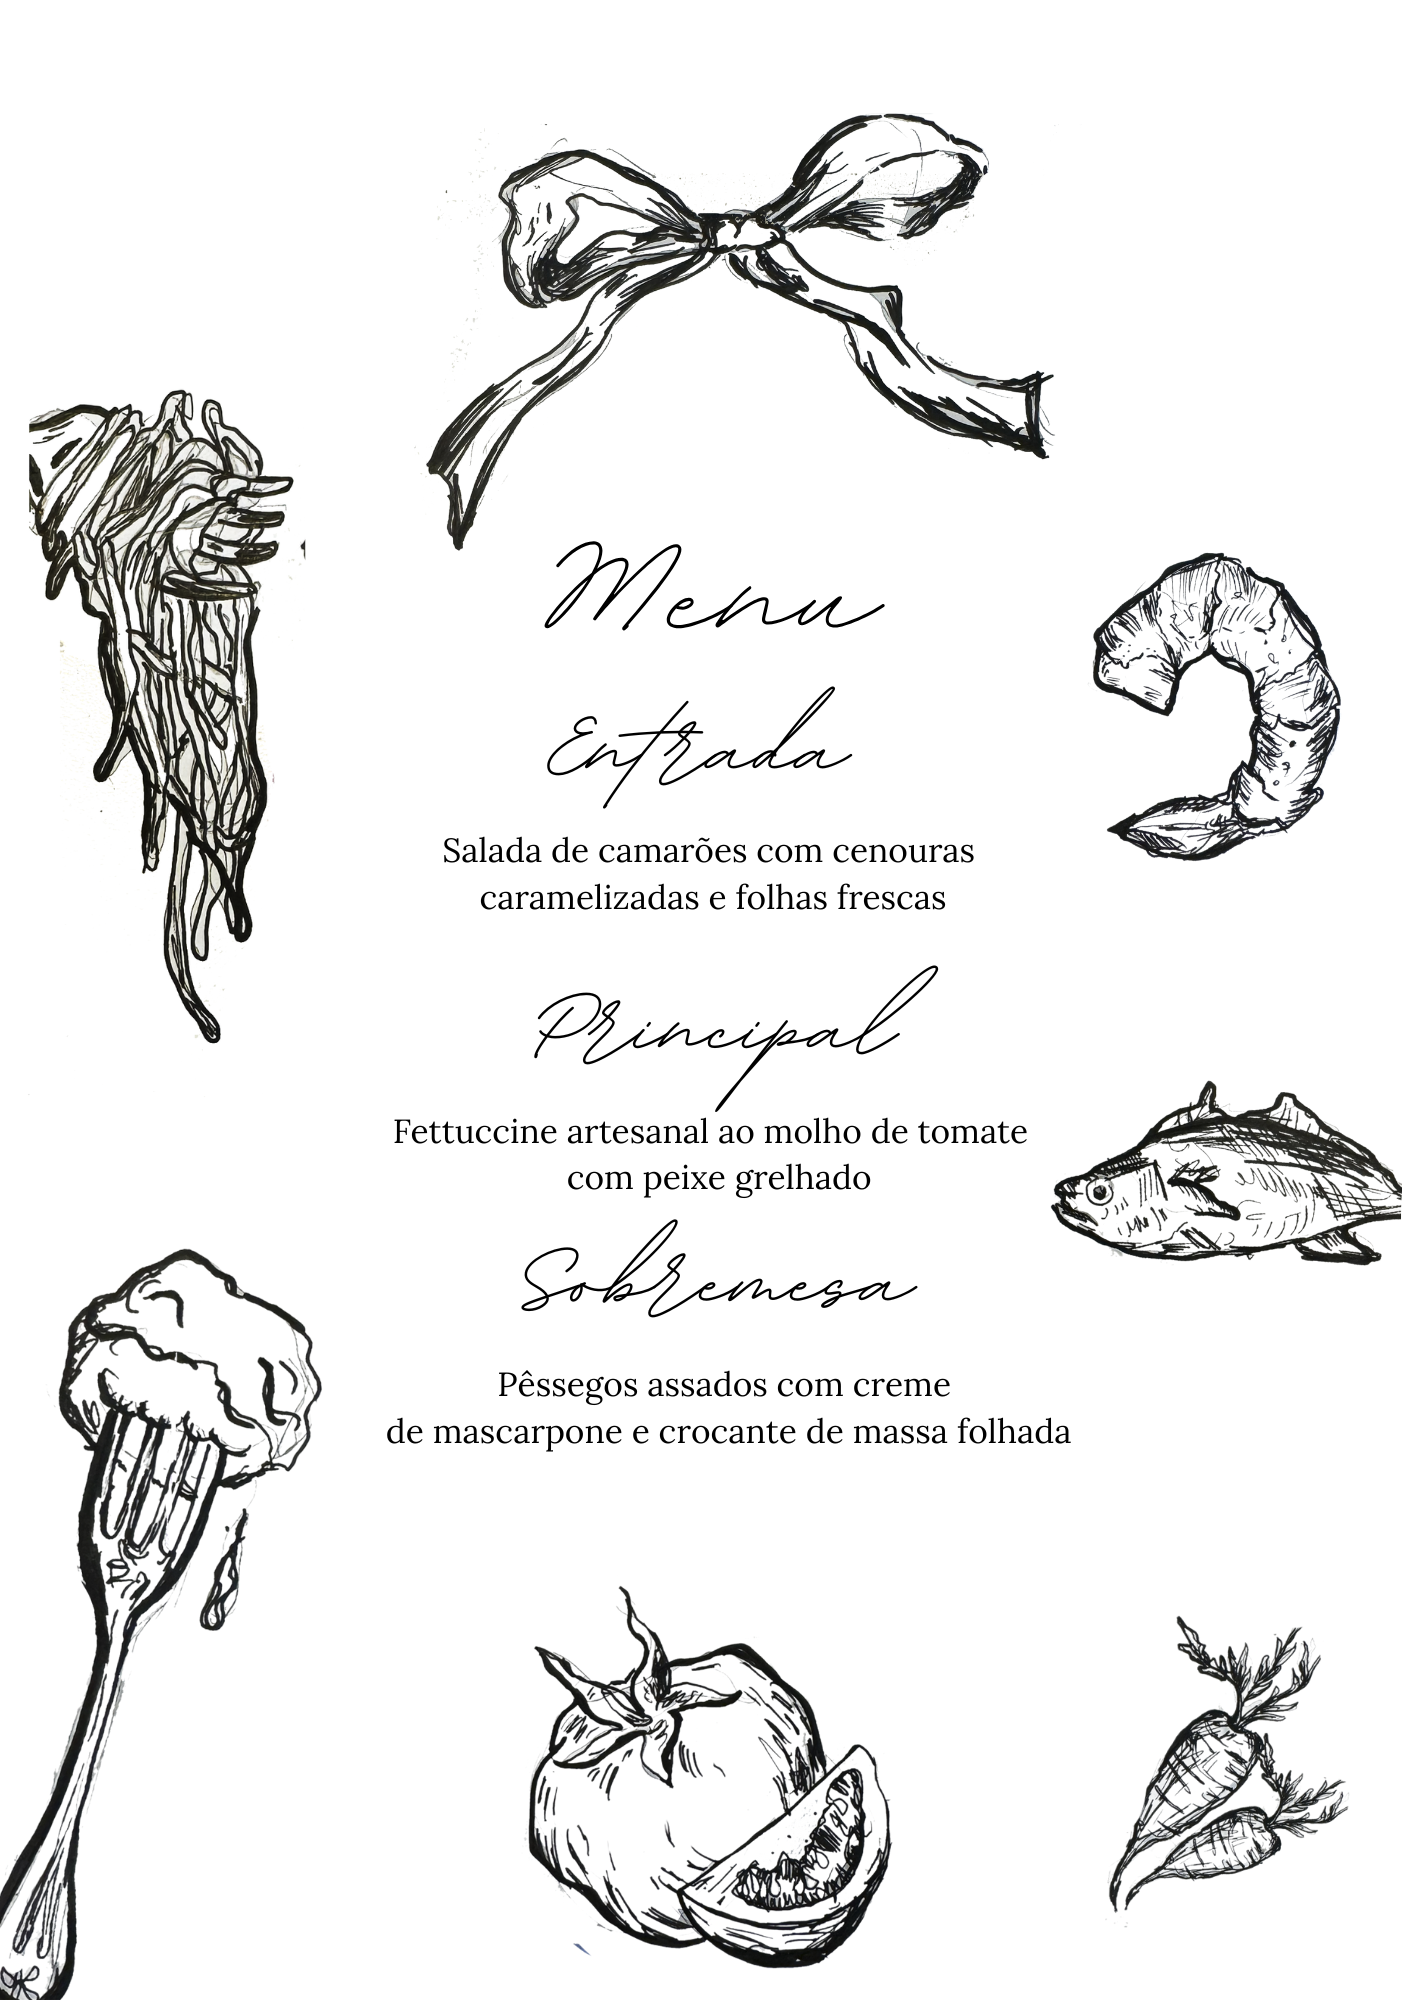 Menu
Entrada
Salada de camarões com cenouras
caramelizadas e folhas frescas
Principal
Fettuccine artesanal ao molho de tomate
com peixe grelhado
Sobremesa
Pêssegos assados com creme
de mascarpone e crocante de massa folhada